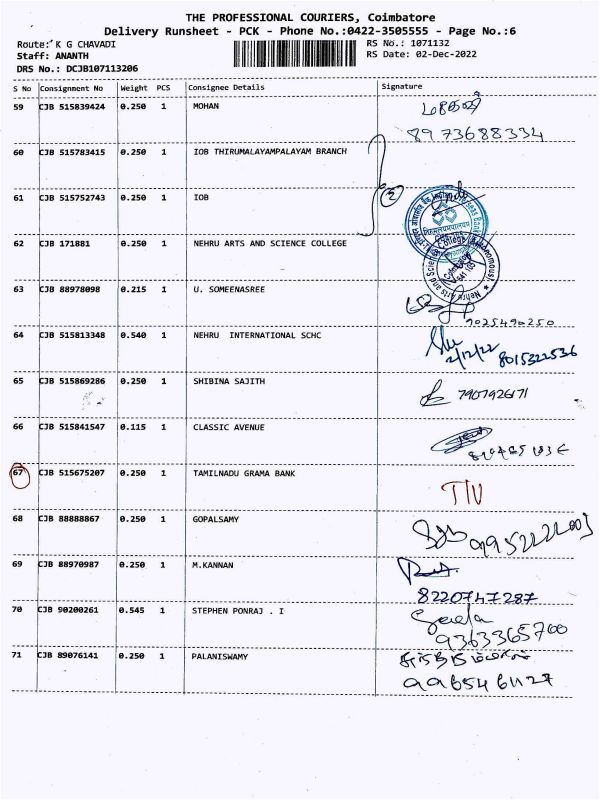 THE PROFESSIONAL COURIERS, Coimbatore
Delivery Runsheet - PCK - Phone No.:0422-3505555 - Page No.:6
Route: K G CHAVADI
RS No.: 1071132
Staff: ANANTH
RS Date: 02-Dec-2022
DRS No.: DCJB107113206
S No Consignment No Weight PCS Consignee Details Signature
59 CJB 515839424 0.250 1 MOHAN
8973688334
60 CJB 515783415 0.250 1 IOB THIRUMALAYAMPALAYAM BRANCH
61 CJB 515752743 0.250 1 IOB
2
62 CJB 171881 0.250 1 NEHRU ARTS AND SCIENCE COLLEGE
63 CJB 88978098 0.215 1 U. SOMEENASREE
9025490250
64 CJB 515813348 0.540 1 NEHRU INTERNATIONAL SCHC
2/12/22 8015322536
65 CJB 515869286 0.250 1 SHIBINA SAJITH
7907926171
66 CJB 515841547 0.115 1 CLASSIC AVENUE
67 CJB 515675207 0.250 1 TAMILNADU GRAMA BANK
68 CJB 88888867 0.250 1 GOPALSAMY
69 CJB 88970987 0.250 1 M.KANNAN
8220747287
70 CJB 90200261 0.545 1 STEPHEN PONRAJ . I
9363365700
71 CJB 89076141 0.250 1 PALANISWAMY
9965461127